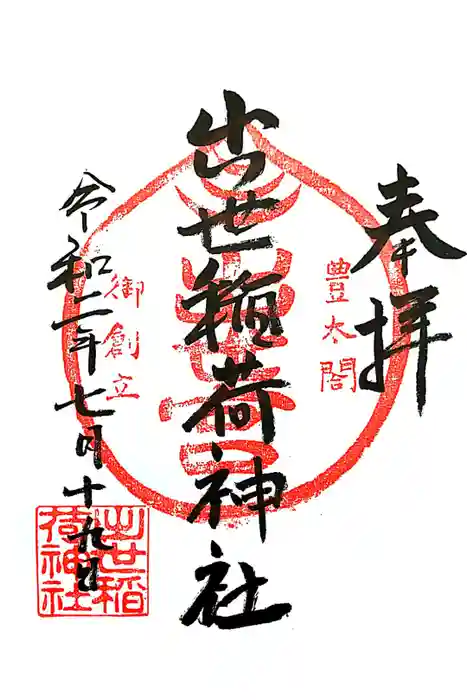 奉拝
豊太閤
出世稲荷神社
御創立
令和二年七月十九日
出世稲
荷神社